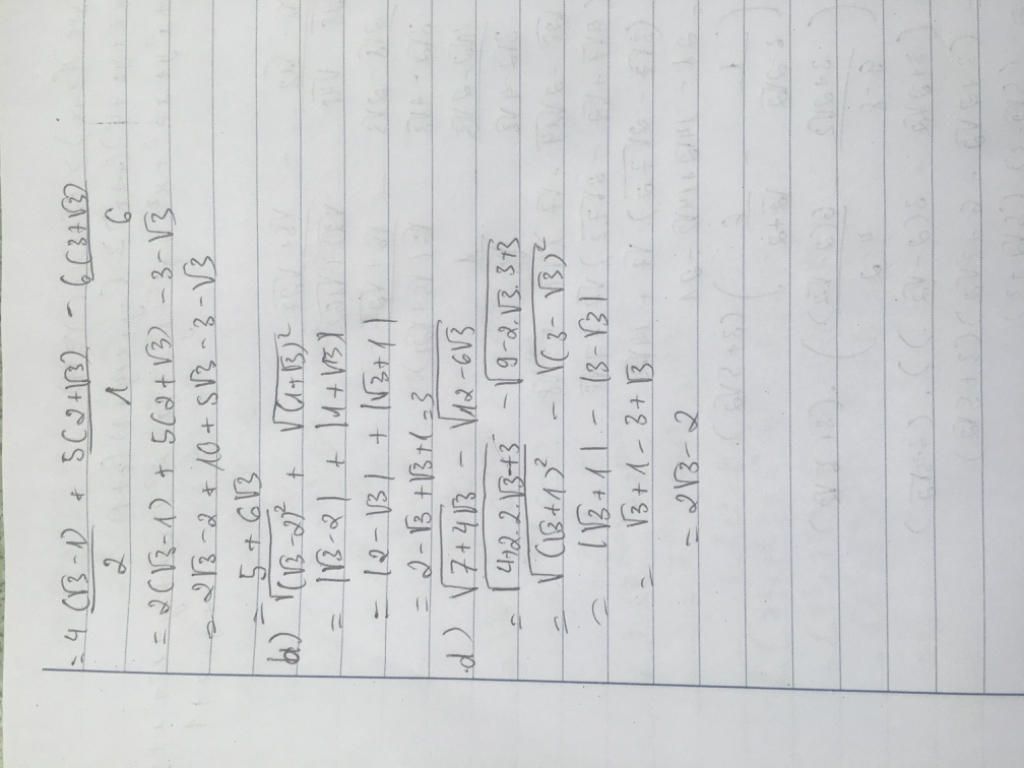 = 4(√3-1)/2 + 5(2+√3)/1 - 6(3+√3)/6
= 2(√3-1) + 5(2+√3) - 3-√3
= 2√3-2 + 10 + 5√3 - 3 - √3
= 5 + 6√3
b) √(√3-2)² + √(1+√3)²
= |√3-2| + |1+√3|
= |2-√3| + |√3+1|
= 2-√3+√3+1=3
d) √7+4√3 - √12-6√3
= √4+2.2.√3+3 - √9-2.√3.3+3
= √(√3+1)² - √(3-√3)²
= |√3+1| - |3-√3|
= √3+1-3+√3
= 2√3-2